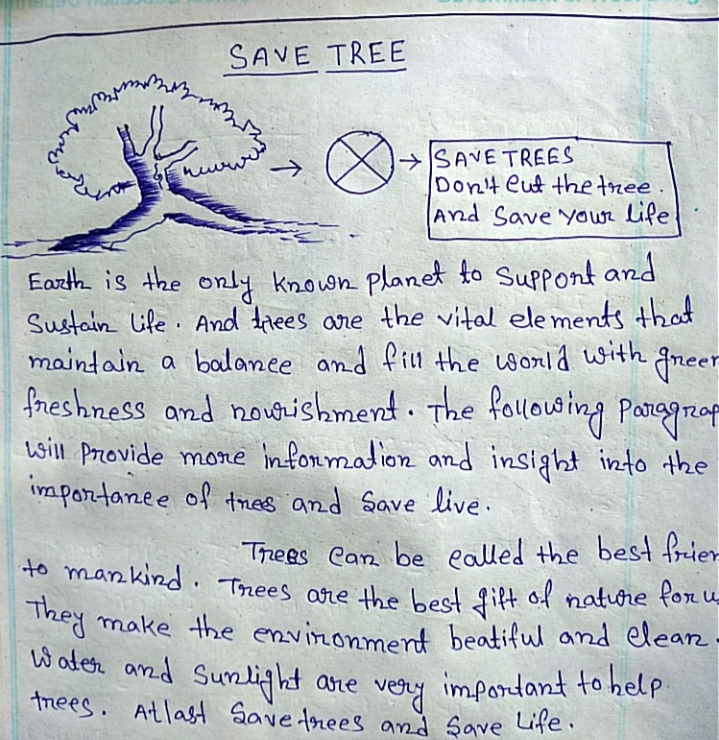 SAVE TREE
SAVE TREES
Don't cut the tree.
And Save your life
Earth is the only known planet to support and
Sustain life. And trees are the vital elements that
maintain a balance and fill the world with green
freshness and nourishment. The following Paragrap
will Provide more information and insight into the
importance of trees and save live.
Trees can be called the best frien
to mankind. Trees are the best gift of nature for u
They make the environment beatiful and clean.
Water and Sunlight are very important to help
trees. At last Save trees and save Life.